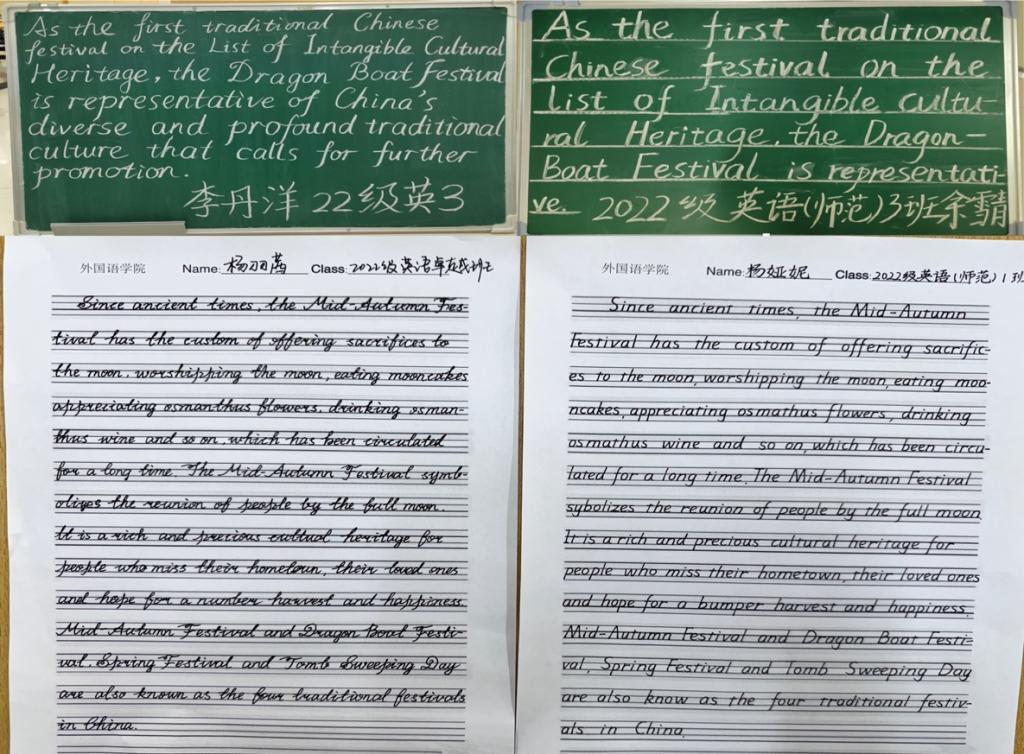 As the first traditional Chinese
festival on the List of Intangible Cultural
Heritage, the Dragon Boat Festival
is representative of China's
diverse and profound traditional
culture that calls for further
promotion.
李丹洋 22级英3
As the first traditional
Chinese festival on the
List of Intangible Cultu-
ral Heritage, the Dragon-
Boat Festival is representati-
ve. 2022级英语(师范)3班余霄
外国语学院 Name: 杨丽 Class: 2022级英语卓越班
Since ancient times, the Mid-Autumn Fes-
tival has the custom of offering sacrifices to
the moon, worshipping the moon, eating mooncakes
appreciating osmanthus flowers, drinking osman-
thus wine and so on, which has been circulated
for a long time. The Mid-Autumn Festival symb-
olizes the reunion of people by the full moon.
It is a rich and precious cultual heritage for
people who miss their hometown, their loved ones
and hope for a number harvest and happiness.
Mid-Autumn Festival and Dragon Boat Festi-
val, Spring Festival and Tomb Sweeping Day
are also known as the four traditional festivals
in China.
外国语学院 Name: 杨娅妮 Class: 2022级英语(师范)1班
Since ancient times, the Mid-Autumn
Festival has the custom of offering sacrific-
es to the moon, worshipping the moon, eating moo-
ncakes, appreciating osmathus flowers, drinking
osmathus wine and so on, which has been circu-
lated for a long time. The Mid-Autumn Festival
sybolizes the reunion of people by the full moon.
It is a rich and precious cultural heritage for
people who miss their hometown, their loved ones
and hope for a bumper harvest and happiness.
Mid-Autumn Festival and Dragon Boat Festi-
val, Spring Festival and Tomb Sweeping Day
are also know as the four traditional festiv-
als in China.